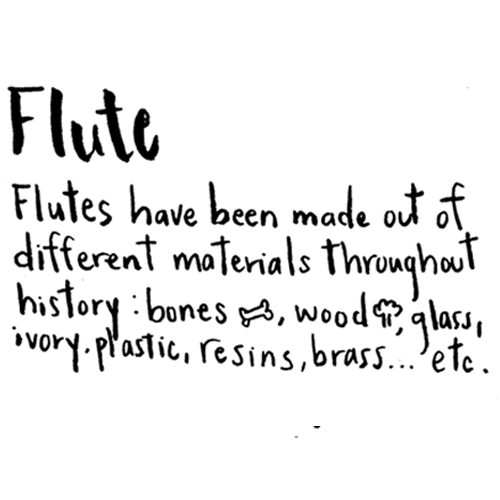 Flute
Flutes have been made out of
different materials throughout
history: bones, wood, glass,
ivory. plastic, resins, brass... etc.